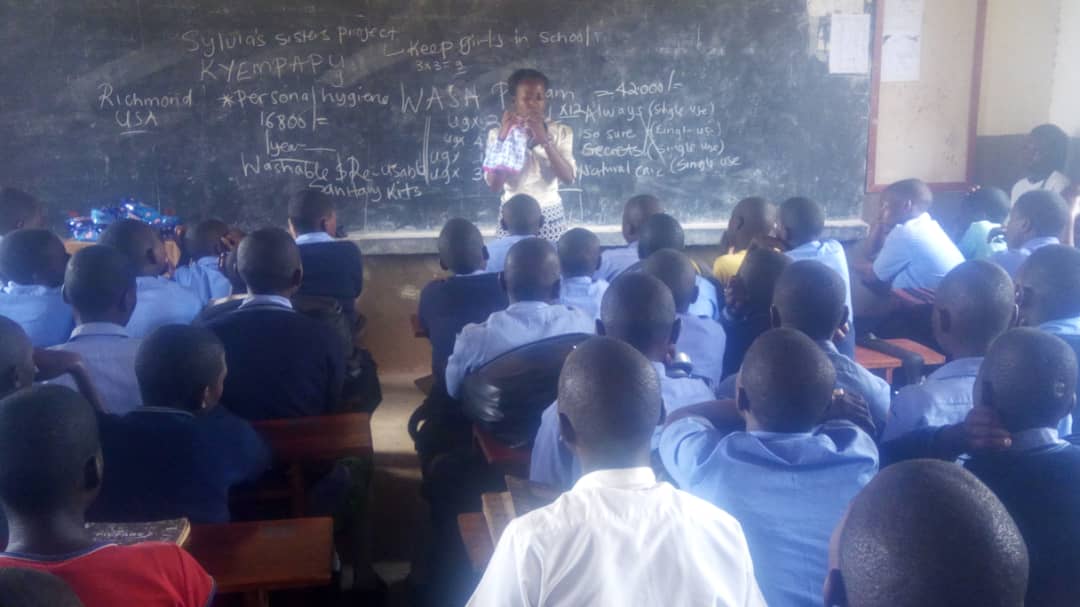 Sylvia's sisters project
Keep girls in school!
KYEMPAPU
3x3=9
Richmond
USA
*Personal hygiene
16800/=
1year
Washable & Re-usable
Sanitary Kits
WASH
42000/=
X12
Always (Single use)
So sure (Single use)
Secrets (Single use)
Natural care (Single use
ugx
ugx
ugx
ugx